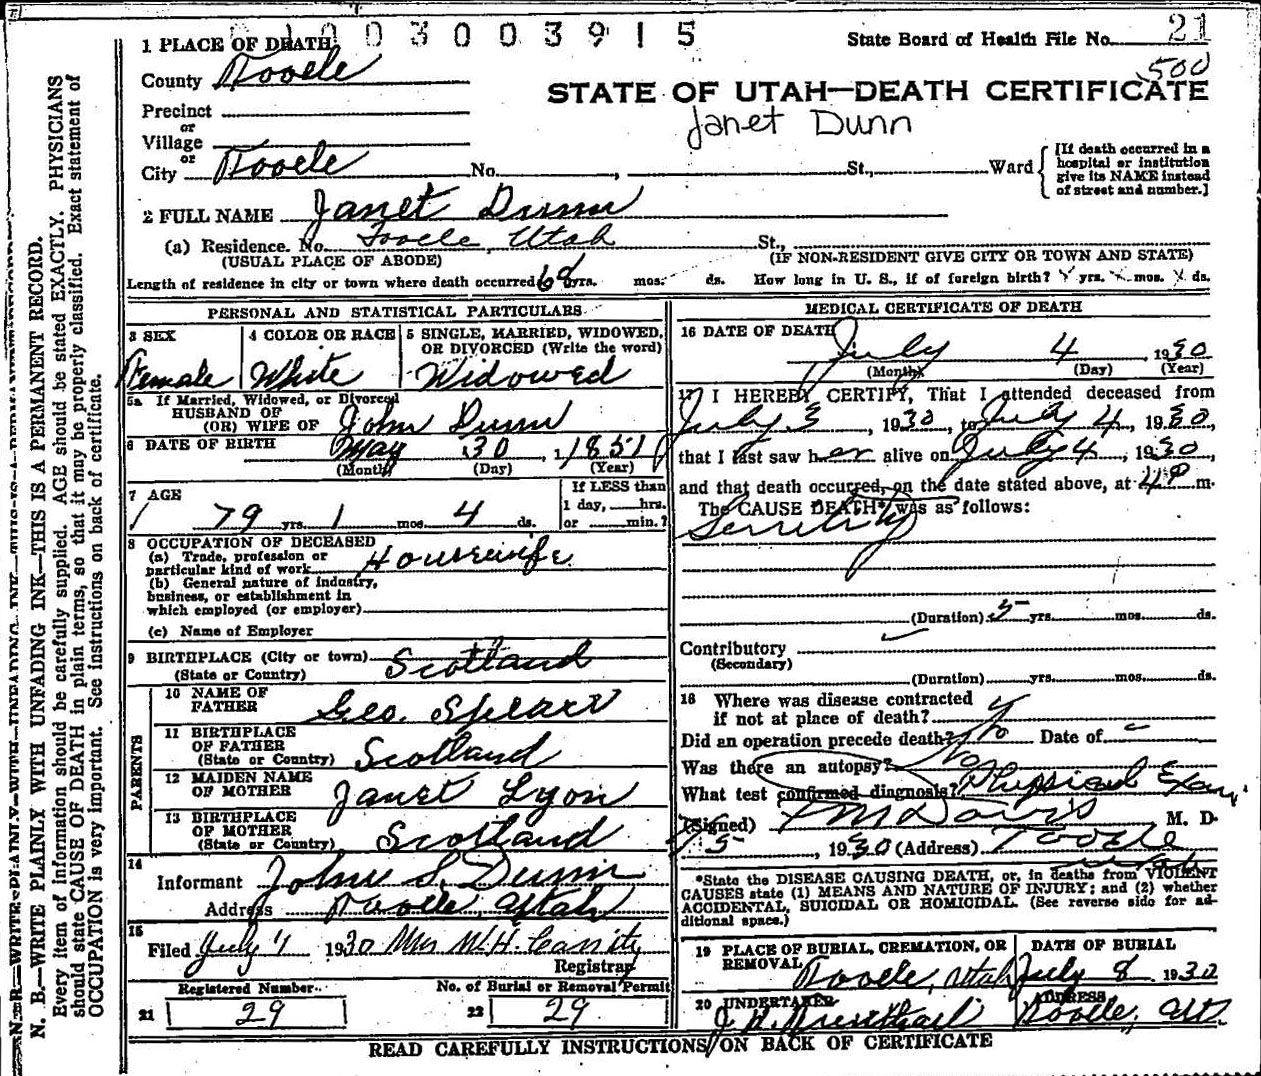 0 1 0 0 3 0 0 3 9 1 5
1 PLACE OF DEATH
State Board of Health File No. 21
County Tooele
500
STATE OF UTAH—DEATH CERTIFICATE
Janet Dunn
Precinct
or
Village
or
City Tooele No. , St., Ward
[If death occurred in a
hospital or institution
give its NAME instead
of street and number.]
2 FULL NAME Janet Dunn
(a) Residence. No. Tooele, Utah St.,
(USUAL PLACE OF ABODE) (IF NON-RESIDENT GIVE CITY OR TOWN AND STATE)
Length of residence in city or town where death occurred 68 yrs. mos. ds. How long in U. S., if of foreign birth? yrs. mos. ds.
PERSONAL AND STATISTICAL PARTICULARS
3 SEX
Female
4 COLOR OR RACE
White
5 SINGLE, MARRIED, WIDOWED,
OR DIVORCED (Write the word)
Widowed
5a If Married, Widowed, or Divorced
HUSBAND OF
(OR) WIFE OF John Dunn
6 DATE OF BIRTH May 30, 1851
(Month) (Day) (Year)
7 AGE
79 yrs. 1 mos. 4 ds.
If LESS than
1 day, hrs.
or min.?
8 OCCUPATION OF DECEASED
(a) Trade, profession or
particular kind of work Housewife
(b) General nature of industry,
business, or establishment in
which employed (or employer)
(c) Name of Employer
9 BIRTHPLACE (City or town) Scotland
(State or Country)
PARENTS
10 NAME OF
FATHER Geo. Speirs
11 BIRTHPLACE
OF FATHER
(State or Country) Scotland
12 MAIDEN NAME
OF MOTHER Janet Lyon
13 BIRTHPLACE
OF MOTHER
(State or Country) Scotland
14
Informant John S. Dunn
Address Tooele, Utah
15
Filed July 1930 Mrs W.H.
Registrar
Registered Number
21 29
No. of Burial or Removal Permit
22 29
MEDICAL CERTIFICATE OF DEATH
16 DATE OF DEATH
July 4, 1930
(Month) (Day) (Year)
17 I HEREBY CERTIFY, That I attended deceased from
July 3, 1930, to July 4, 1930,
that I last saw her alive on July 4, 1930,
and that death occurred, on the date stated above, at 4 P m.
The CAUSE DEATH* was as follows:
Senility
(Duration) 5 yrs. mos. ds.
Contributory
(Secondary)
(Duration) yrs. mos. ds.
18 Where was disease contracted
if not at place of death?
Did an operation precede death? No Date of
Was there an autopsy? No
What test confirmed diagnosis? Physical Exam.
(Signed) Davis M. D.
7/5, 1930 (Address) Tooele
Utah
*State the DISEASE CAUSING DEATH, or, in deaths from VIOLENT
CAUSES state (1) MEANS AND NATURE OF INJURY; and (2) whether
ACCIDENTAL, SUICIDAL OR HOMICIDAL. (See reverse side for ad-
ditional space.)
19 PLACE OF BURIAL, CREMATION, OR
REMOVAL Tooele, Utah
DATE OF BURIAL
July 8 1930
20 UNDERTAKER
ADDRESS
Tooele, Ut.
READ CAREFULLY INSTRUCTIONS ON BACK OF CERTIFICATE
N. B.—WRITE PLAINLY WITH UNFADING INK—THIS IS A PERMANENT RECORD.
Every item of information should be carefully supplied. AGE should be stated EXACTLY. PHYSICIANS
should state CAUSE OF DEATH in plain terms, so that it may be properly classified. Exact statement of
OCCUPATION is very important. See instructions on back of certificate.